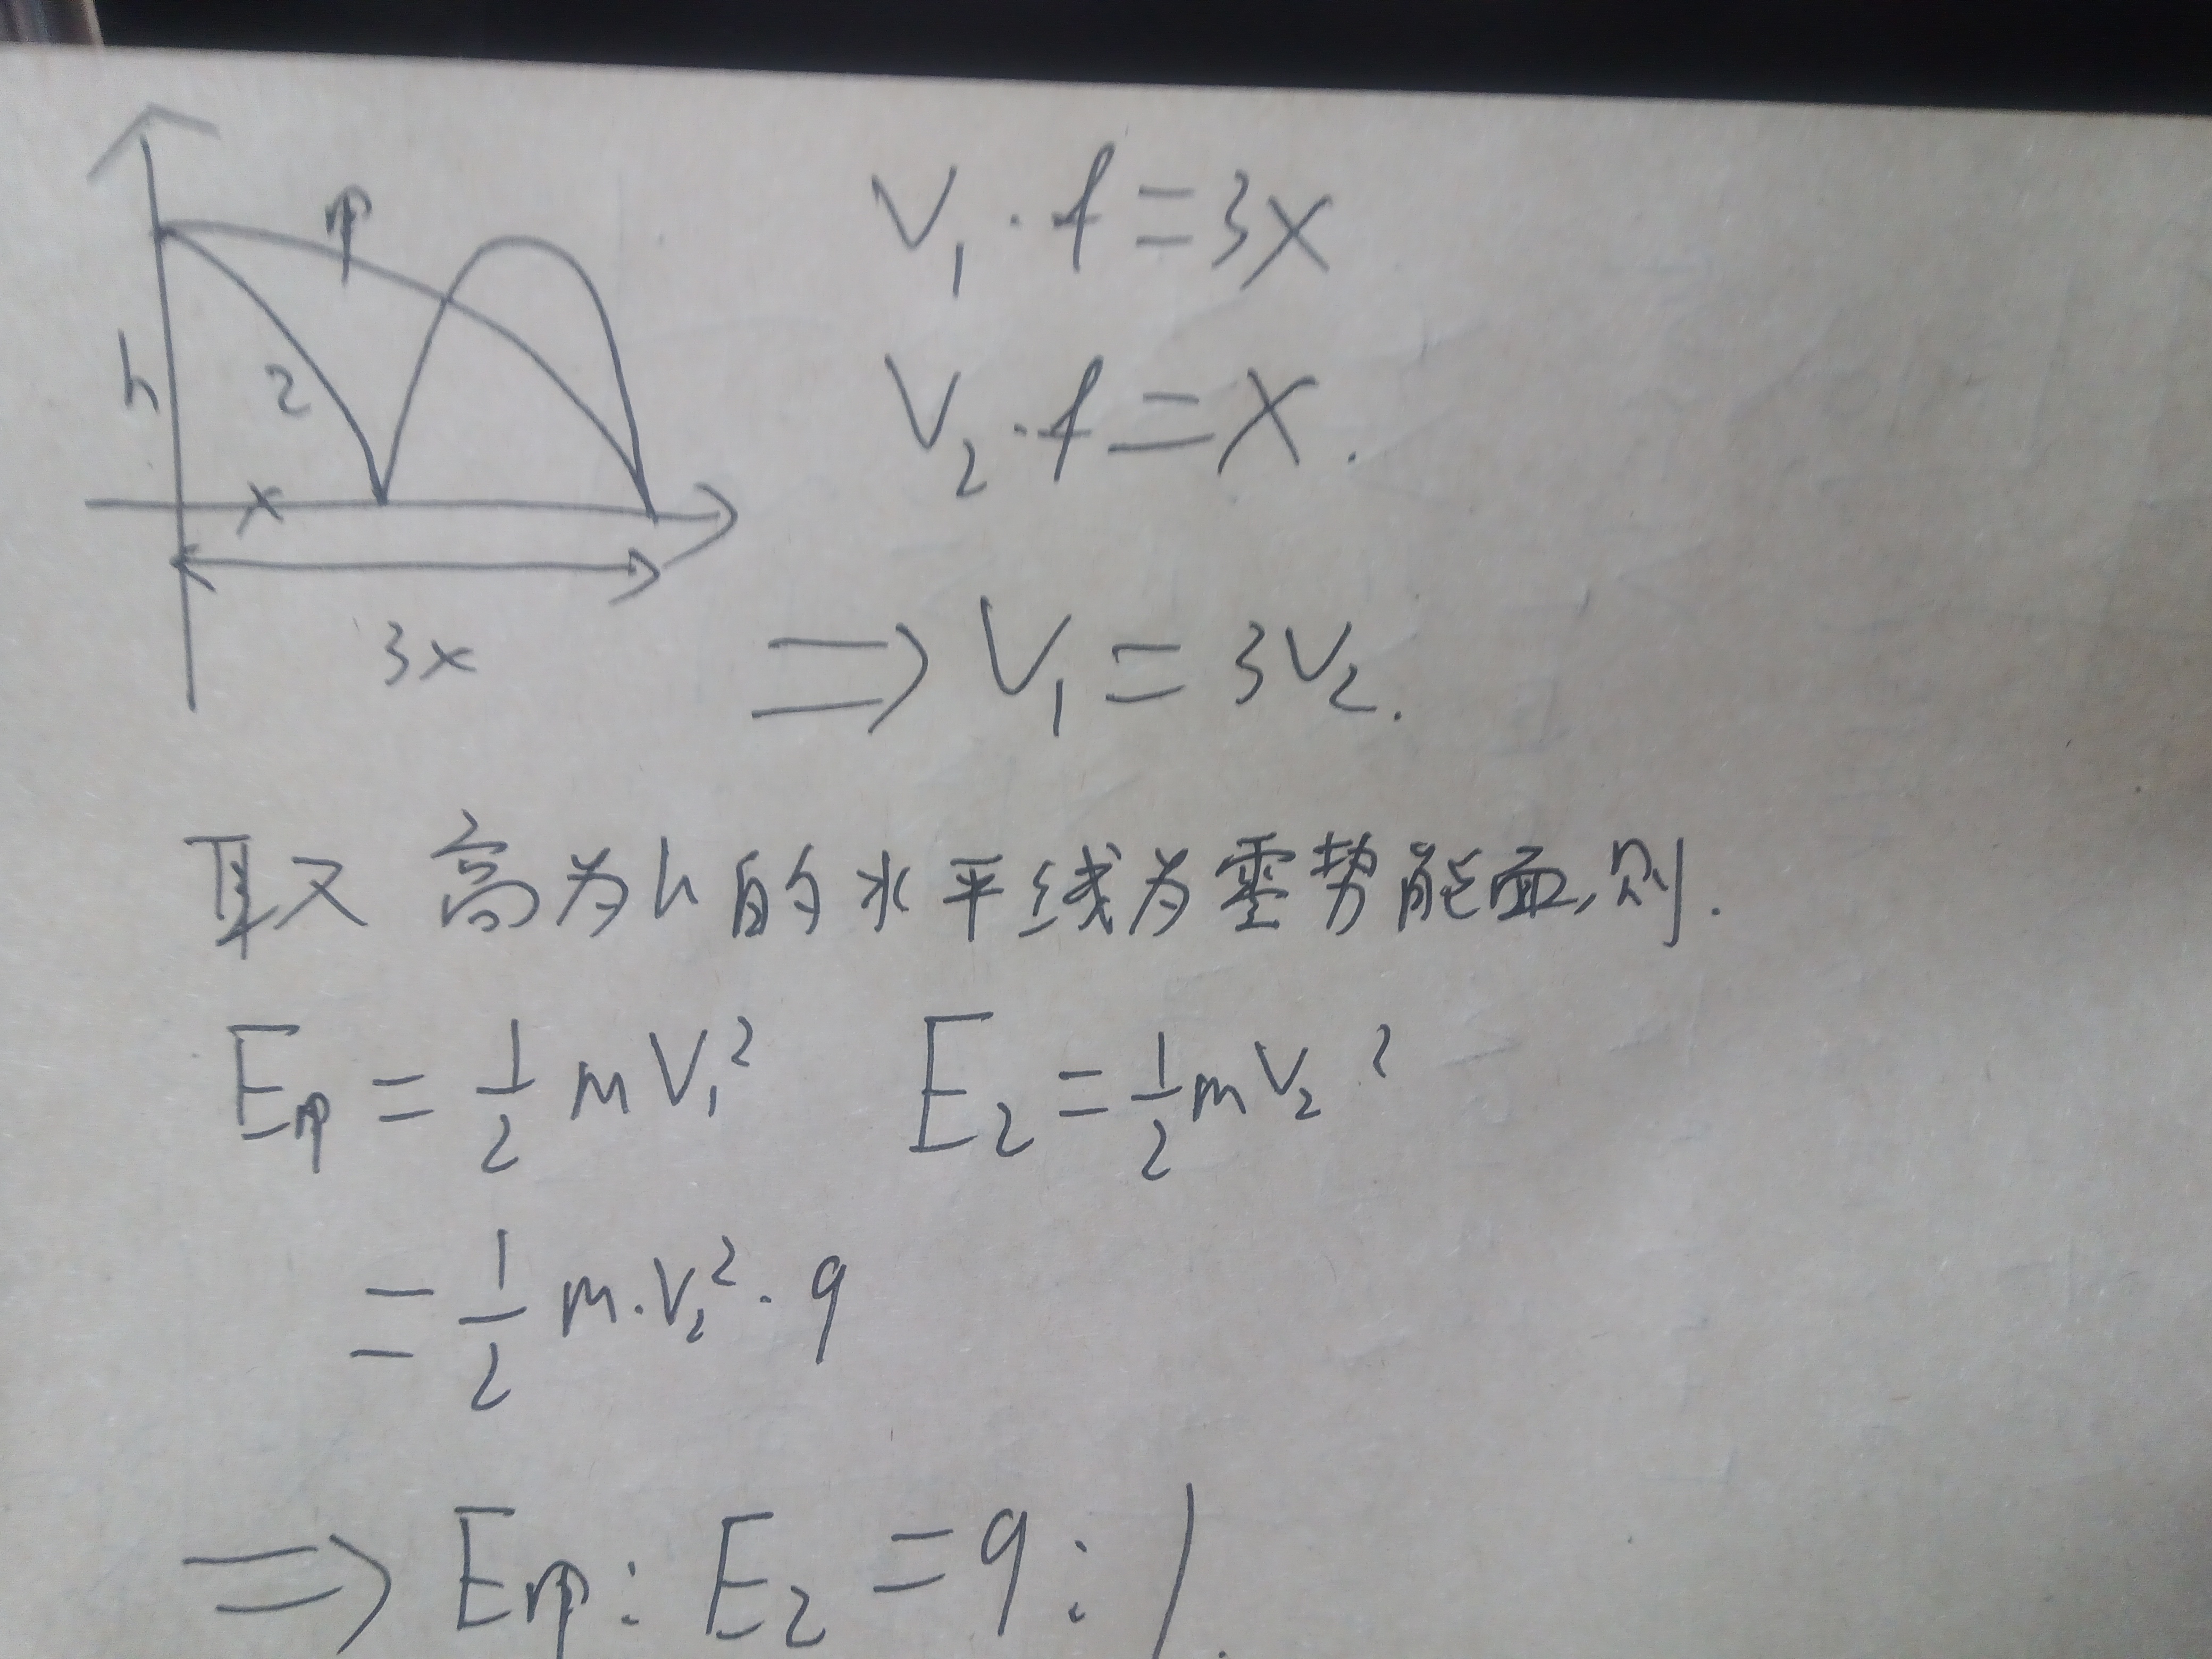 甲
h
乙
x
3x
V₁·t=3x
V₂·t=x.
⇒ V₁=3V₂.
取 高为h的水平线为零势能面,则.
E甲 = 1/2 mV₁² E乙 = 1/2 mV₂²
= 1/2 m·V₂²·9
⇒ E甲:E乙=9:1.